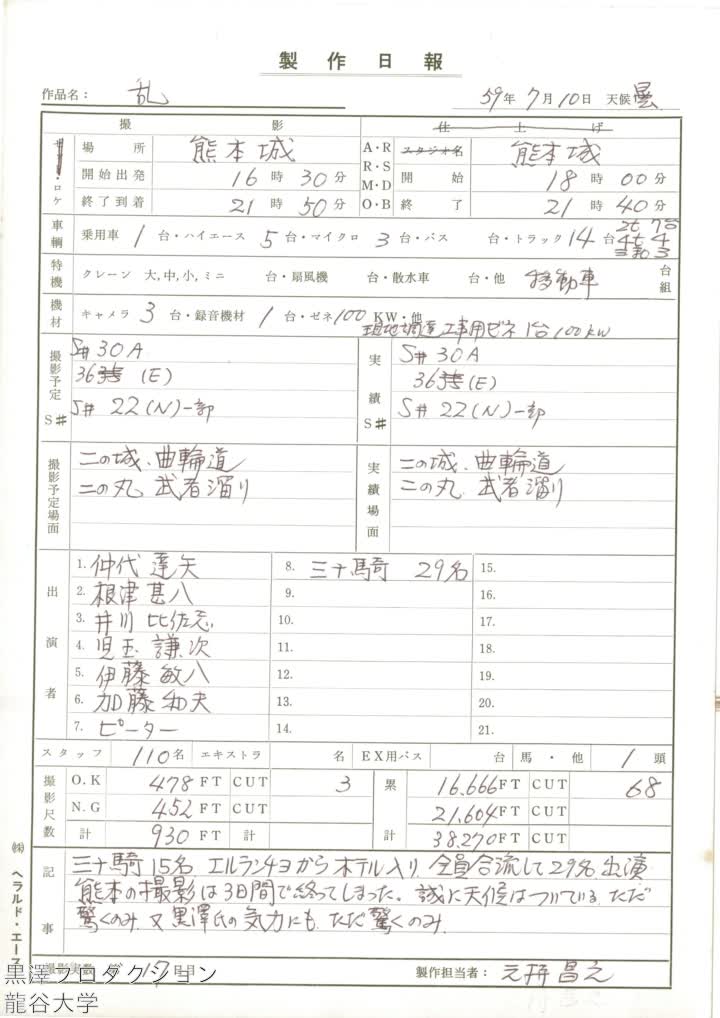 製作日報
作品名： 乱
59年 7月 10日 天候 曇
撮影 仕上げ
・ロケ
場所 熊本城
A・R R・S M・D O・B
スタジオ名 熊本城
開始出発 16時30分 開始 18時00分
終了到着 21時50分 終了 21時40分
車輌 乗用車 1台・ハイエース 5台・マイクロ 3台・バス 台・トラック 14台 2t 7台 4t 4
特機 クレーン 大,中,小,ミニ 台・扇風機 台・散水車 台・他 移動車 台組
機材 キャメラ 3台・録音機材 1台・ゼネ 100KW・他
現地調達 工事用ゼネ 1台 100kW
撮影予定 S# S#30A 実績 S# S#30A
36 (E) 36 (E)
S#22(N)一部 S#22(N)一部
撮影予定場面 二の城、曲輪道 実績場面 二の城、曲輪道
二の丸 武者溜り 二の丸 武者溜り
出演者
1. 仲代達矢 8. 三十騎 29名 15.
2. 根津甚八 9. 16.
3. 井川比佐志 10. 17.
4. 児玉謙次 11. 18.
5. 伊藤敏八 12. 19.
6. 加藤和夫 13. 20.
7. ピーター 14. 21.
スタッフ 110名 エキストラ 名 EX用バス 台 馬・他 1頭
撮影尺数 O.K 478FT CUT 3 累計 16,666FT CUT 68
N.G 452FT CUT 21,604FT CUT
計 930FT 計 38,270FT CUT
記事
三十騎15名 エルランチョからホテル入り 全員合流して29名出演
熊本の撮影は3日間で終ってしまった。誠に天候はついている。ただ
驚くのみ 又黒澤氏の気力にも、ただ驚くのみ.
㈱ ヘラルド・エース
撮影実数 第17日目 製作担当者： 元持昌之
黒澤プロダクション
龍谷大学